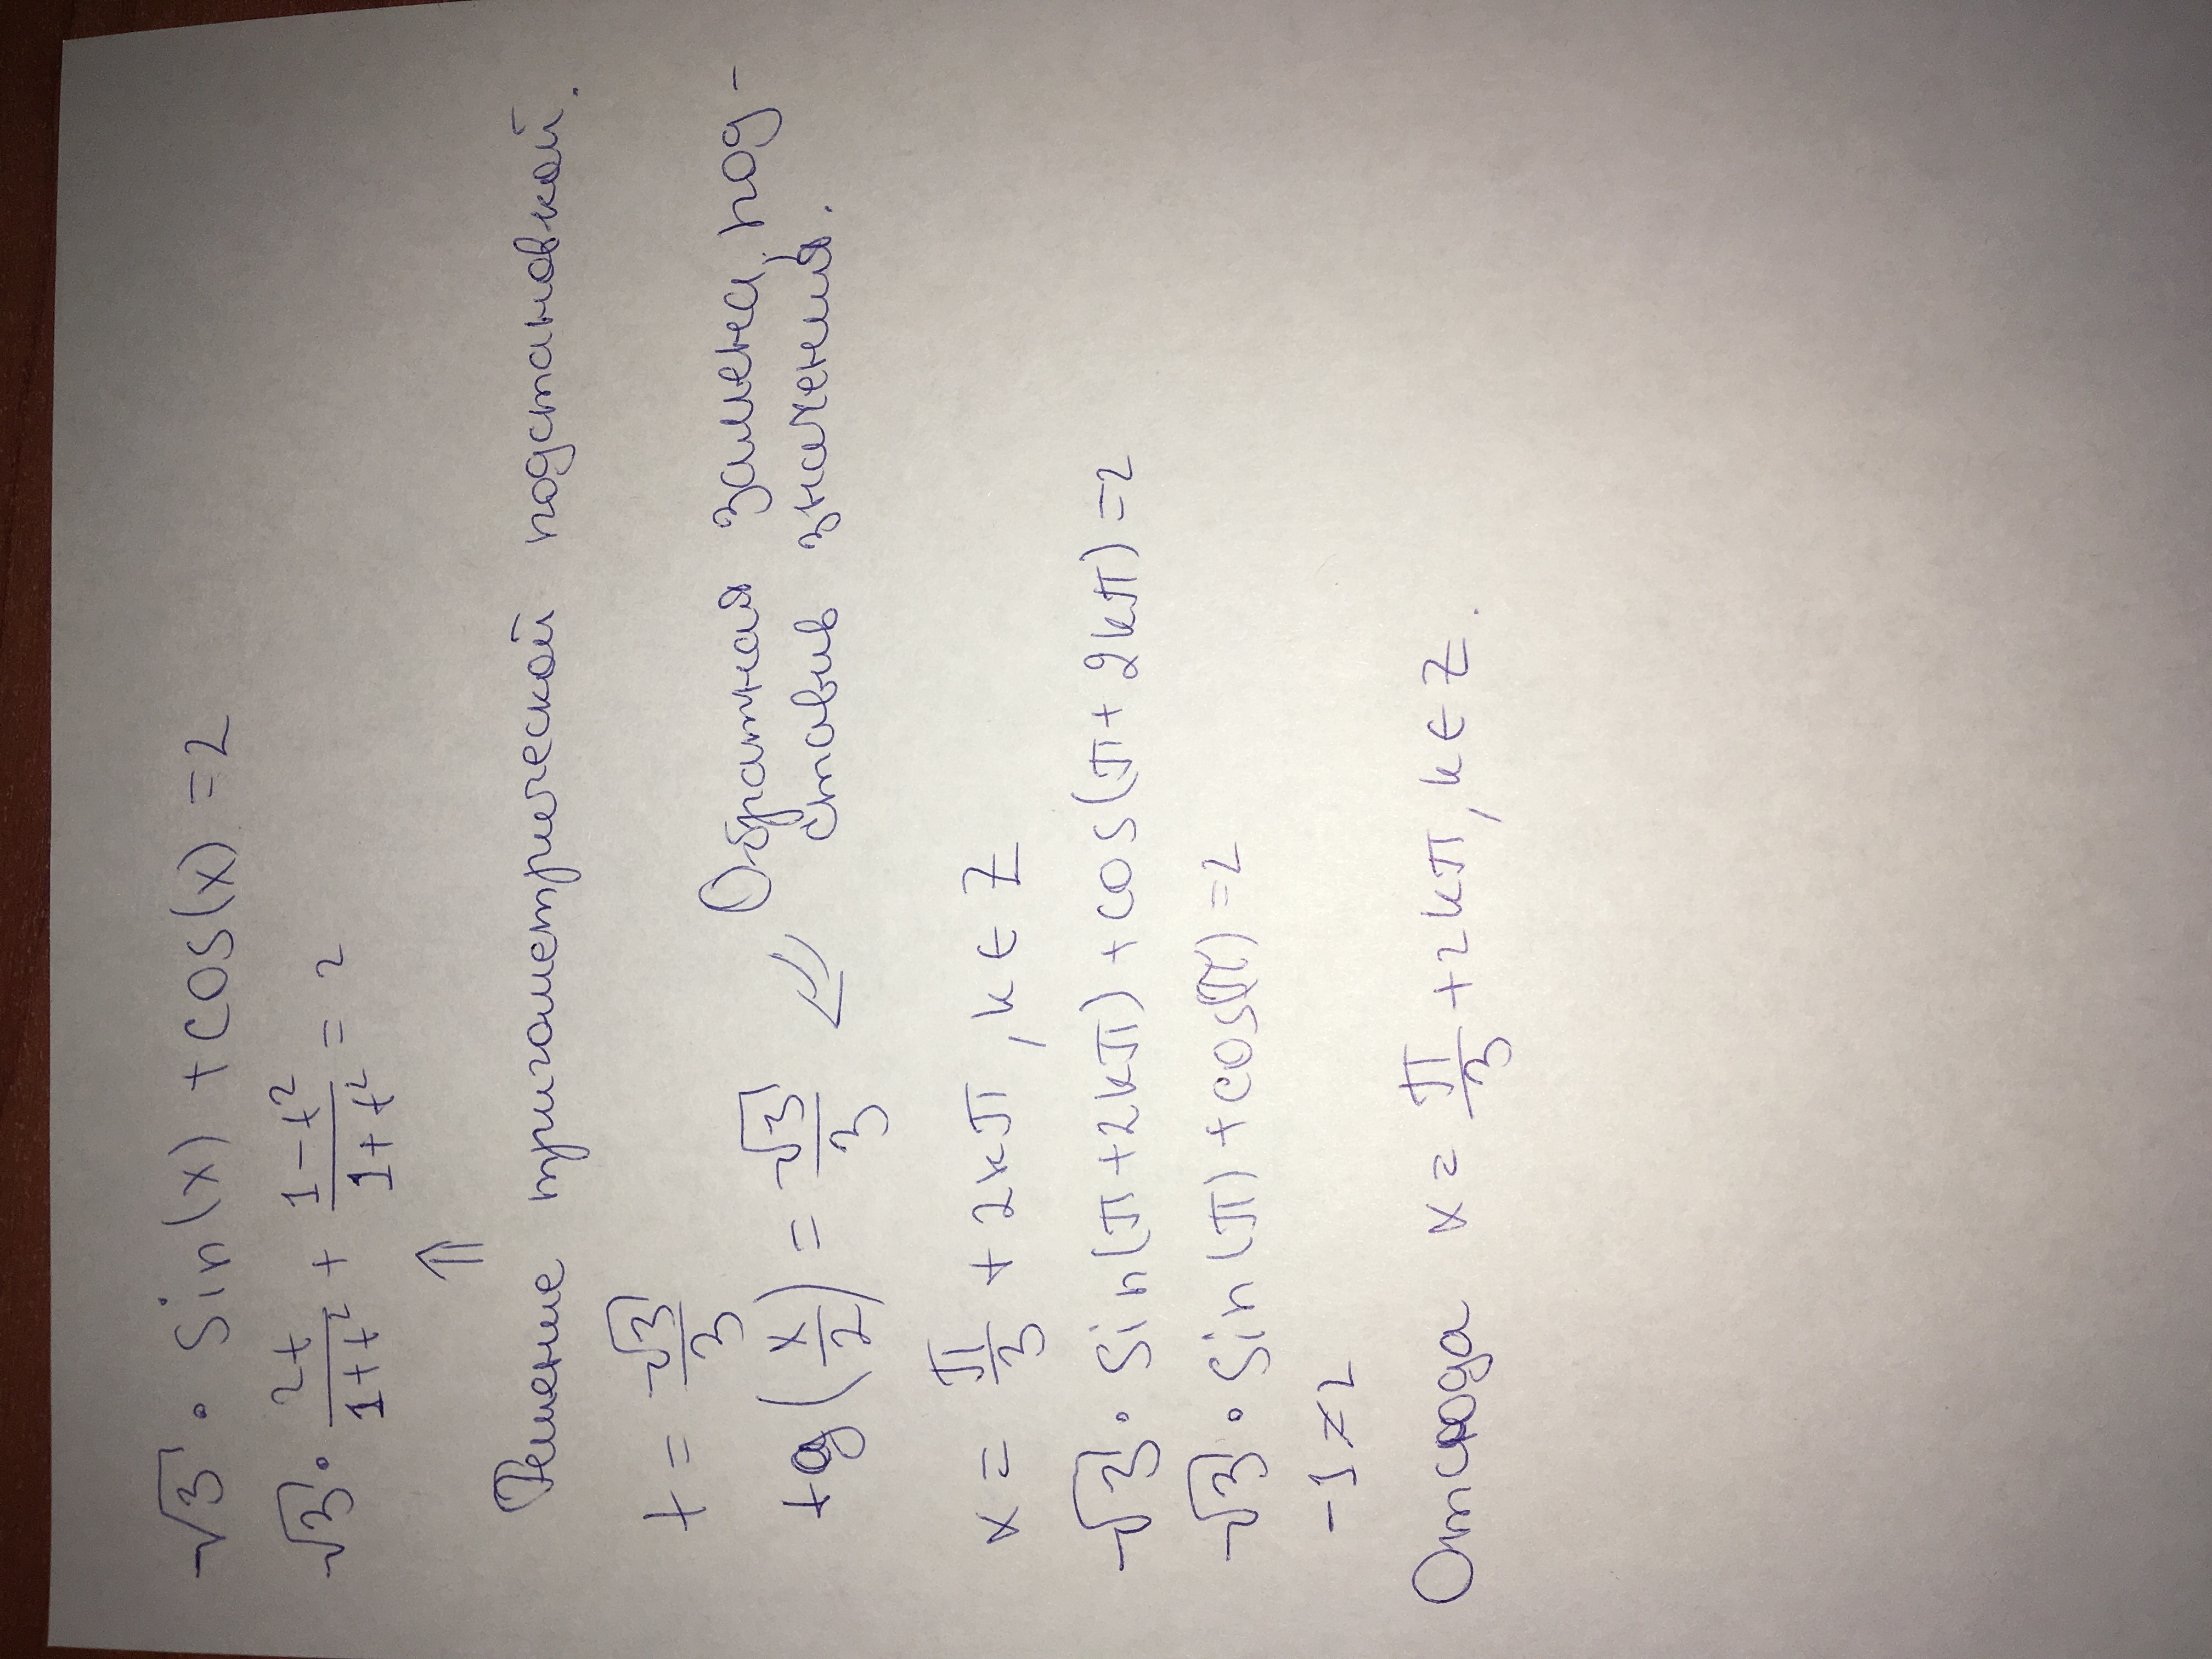 √3 · Sin(x) + cos(x) = 2
√3 · 2t/(1+t²) + (1-t²)/(1+t²) = 2
⇑
Решение тригометрической подстановкой.
t = √3/3
tg(x/2) = √3/3 ⇐ Обратная замена, под-
ставив значения.
x = π/3 + 2kπ, k ∈ Z
√3 · Sin(π + 2kπ) + cos(π + 2kπ) = 2
√3 · Sin(π) + cos(π) = 2
-1 ≠ 2
Отсюда x = π/3 + 2kπ, k ∈ Z.